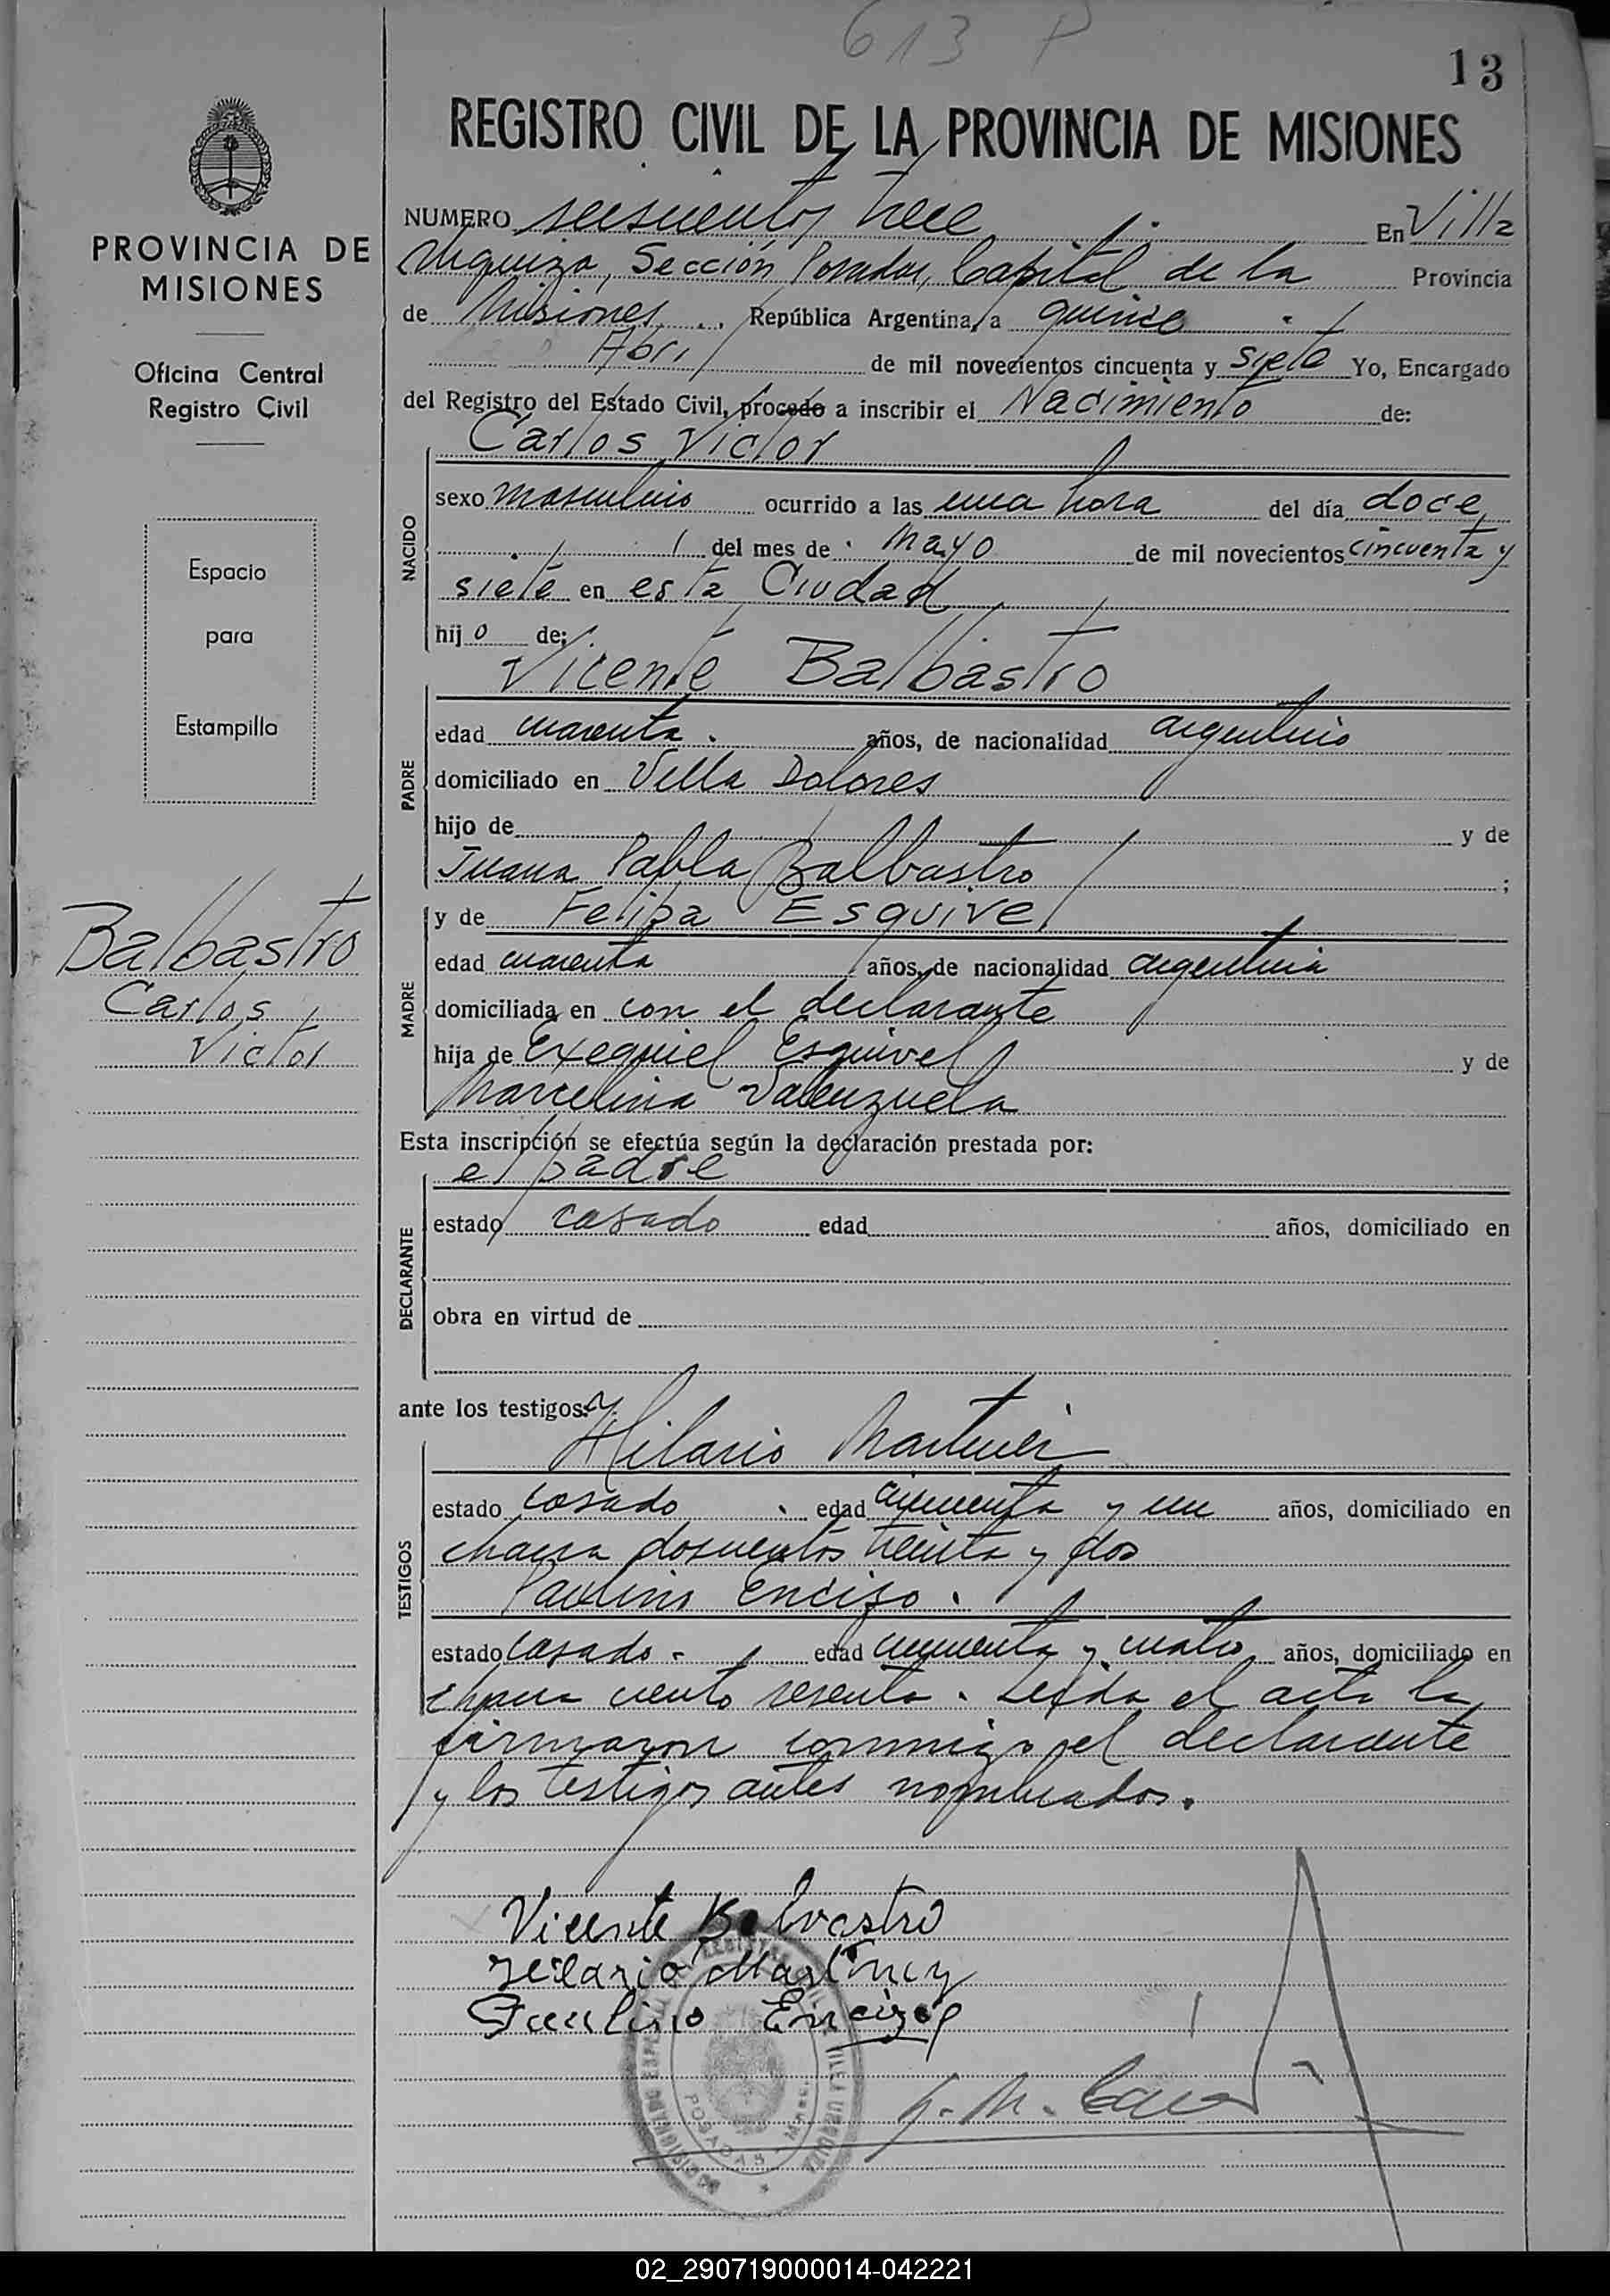 613 P
13
REGISTRO CIVIL DE LA PROVINCIA DE MISIONES
PROVINCIA DE
MISIONES
Oficina Central
Registro Civil
Espacio
para
Estampilla
Balbastro
Carlos
Victor
NUMERO seiscientos trece En Villa
Urquiza, Sección Posadas, Capital de la Provincia
de Misiones, República Argentina, a quince
Abril de mil novecientos cincuenta y siete Yo, Encargado
del Registro del Estado Civil, procedo a inscribir el Nacimiento de:
Carlos Victor
NACIDO
sexo masculino ocurrido a las una hora del día doce
del mes de Mayo de mil novecientos cincuenta y
siete en esta Ciudad
hijo de:
Vicente Balbastro
PADRE
edad cuarenta años, de nacionalidad argentino
domiciliado en Villa Dolores
hijo de y de
Juana Pabla Balbastro ;
MADRE
y de Felipa Esquivel
edad cuarenta años, de nacionalidad argentina
domiciliada en con el declarante
hija de Exequiel Esquivel y de
Marcelina Valenzuela
Esta inscripción se efectúa según la declaración prestada por:
el padre
DECLARANTE
estado casado edad años, domiciliado en
obra en virtud de
ante los testigos:
Hilario Martinez
TESTIGOS
estado casado edad cincuenta y un años, domiciliado en
chacra doscientos treinta y dos
Paulino Enciso.
estado casado - edad cincuenta y cuatro años, domiciliado en
chacra ciento sesenta. Leída el acta la
firmaron conmigo el declarante
y los testigos antes nombrados.
Vicente Balvastro
Hilario Martinez
Paulino Encizo
POSADAS
02_290719000014-042221